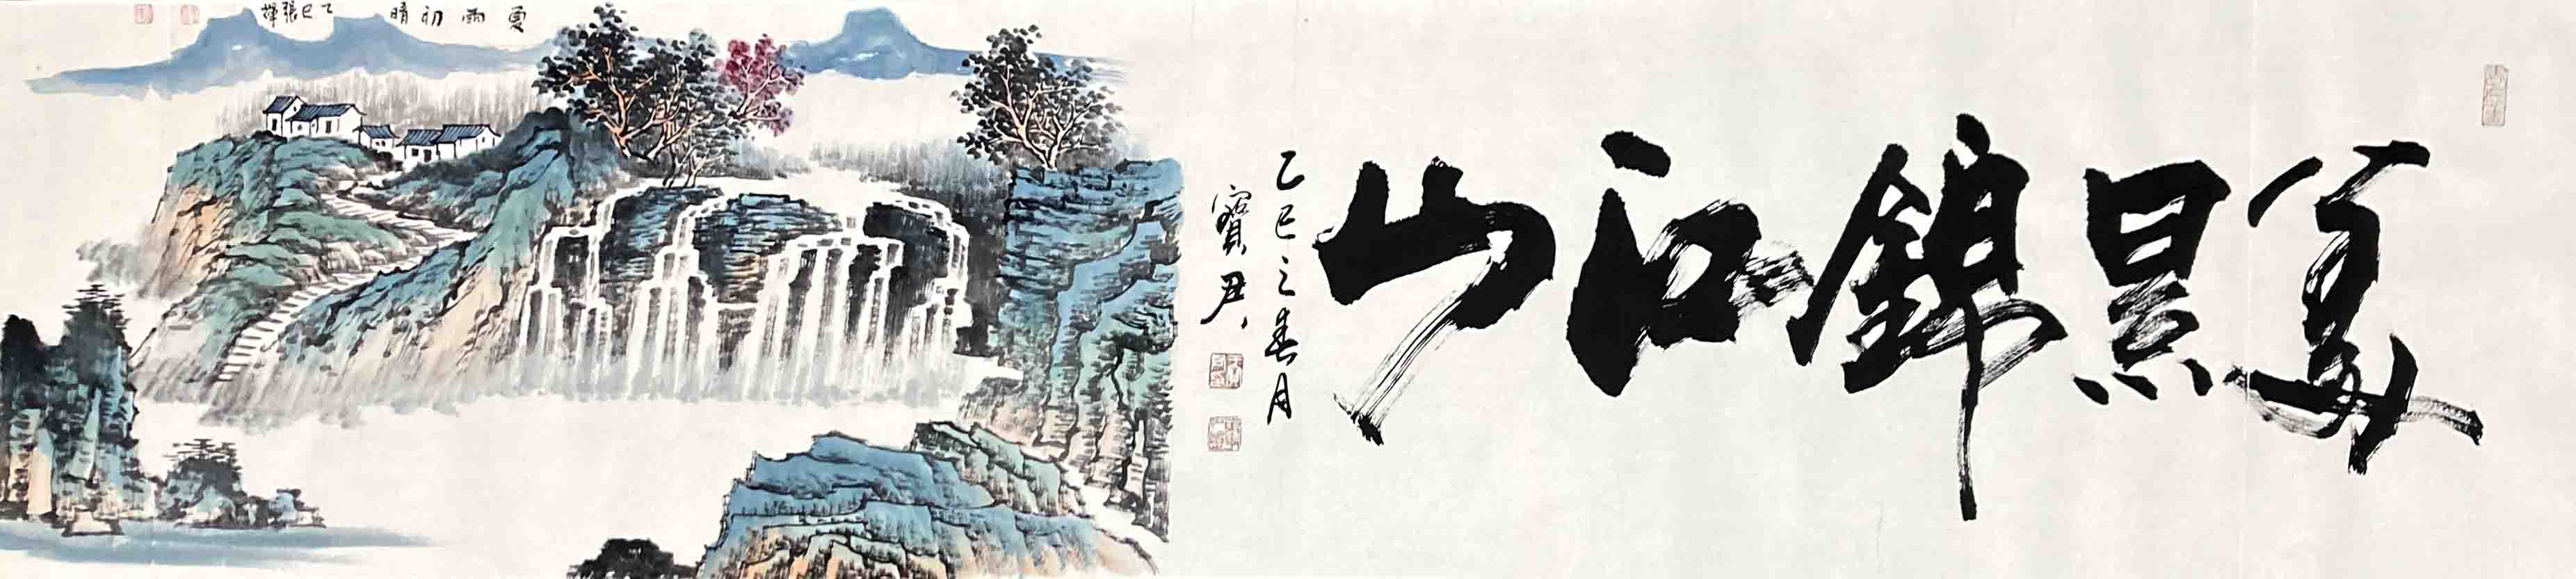 美景錦江山
乙巳之春月
寶君
夏雨初晴
乙巳張輝